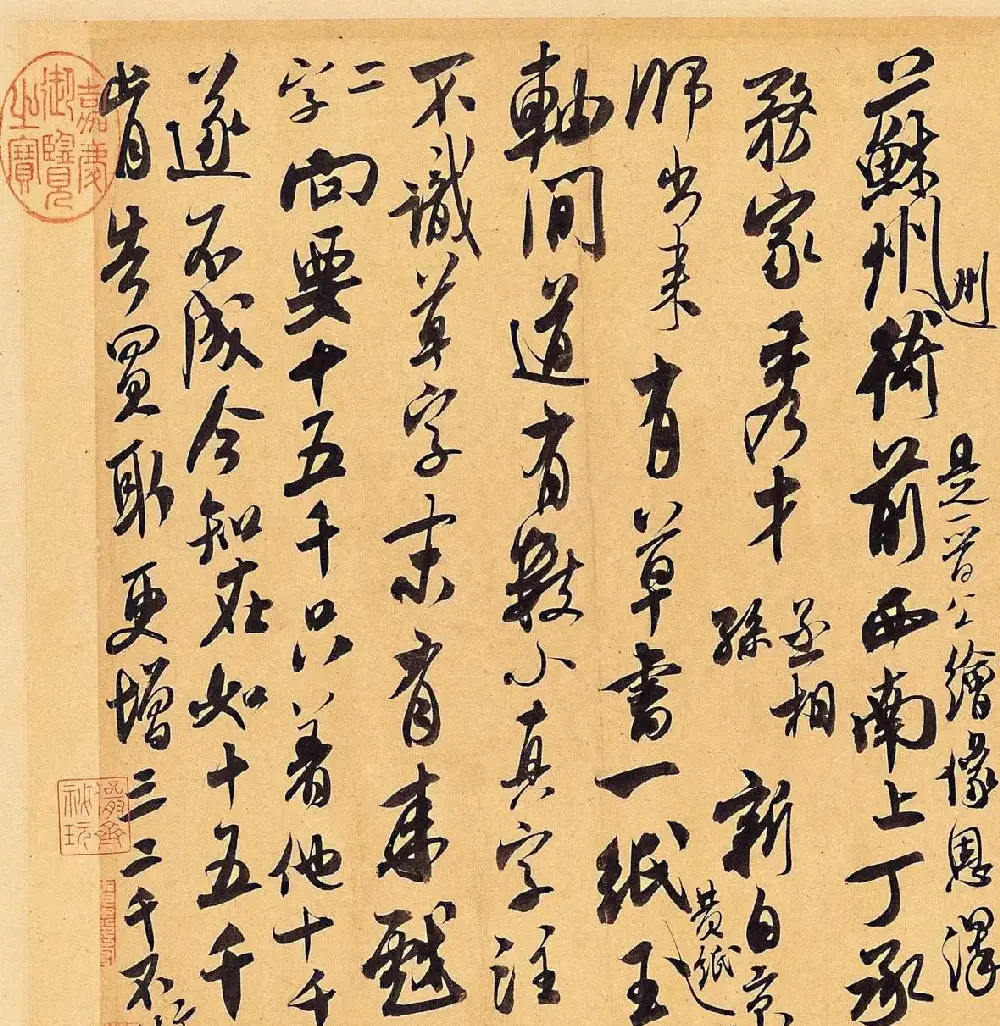 蘇州衙前西南上丁承
州
是晉公繪像恩澤
務家秀才
丞相
孫
新自京
師出來有草書一紙玉
黄紙
軸間道有數小真字注
不識草字末有來戯
二
字向要十五千只着他十千
遂不成今知在如十五千
肯告買取更增三二千不
嘉慶
御覽
之寶
儼齋
祕玩